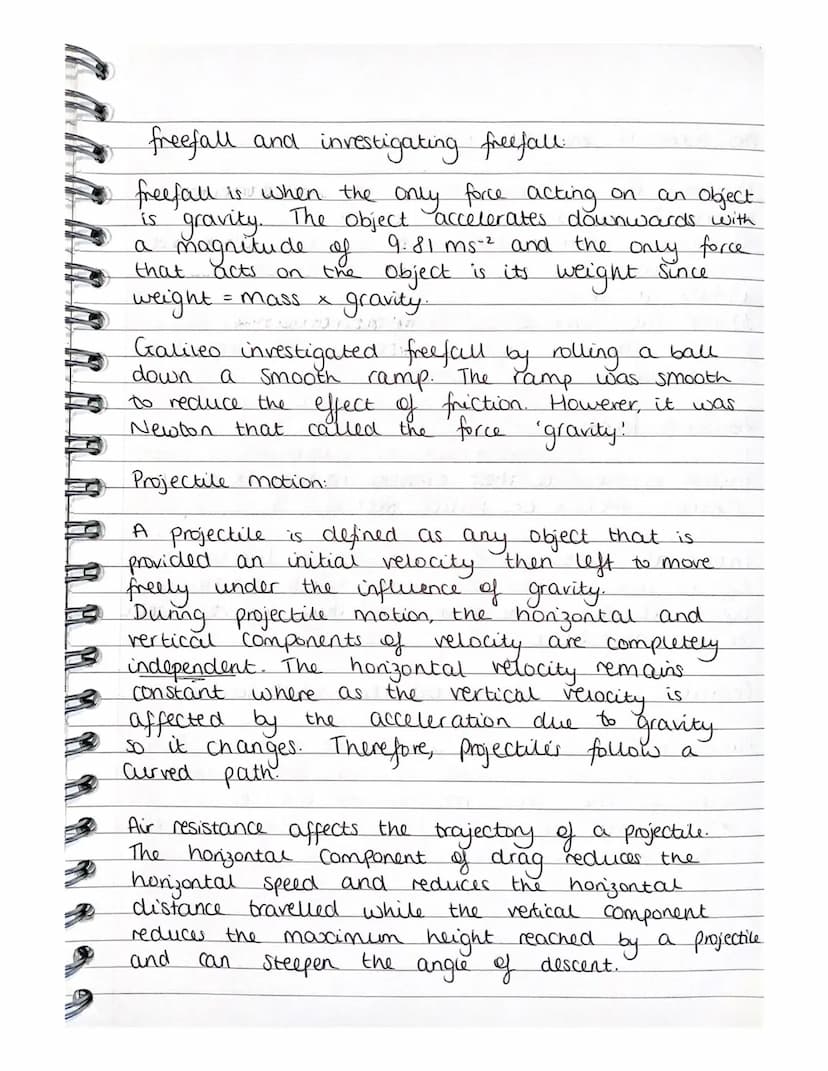 freefall and investigating freefall:
freefall is when the only force acting on an object
is gravity. The object accelerates downwards with
a magnitude of 9.81 ms⁻² and the only force
that acts on the object is its weight since
weight = mass x gravity.
Galileo investigated freefall by rolling a ball
down a smooth ramp. The ramp was smooth
to reduce the effect of friction. However, it was
Newton that called the force 'gravity'.
Projectile motion:
A projectile is defined as any object that is
provided an initial velocity then left to move
freely under the influence of gravity.
During projectile motion, the horizontal and
vertical components of velocity are completely
independent. The horizontal velocity remains
constant where as the vertical velocity is
affected by the acceleration due to gravity
so it changes. Therefore, projectiles follow a
curved path.
Air resistance affects the trajectory of a projectile.
The horizontal component of drag reduces the
horizontal speed and reduces the horizontal
distance travelled while the vertical component
reduces the maximum height reached by a projectile
and can steepen the angle of descent.